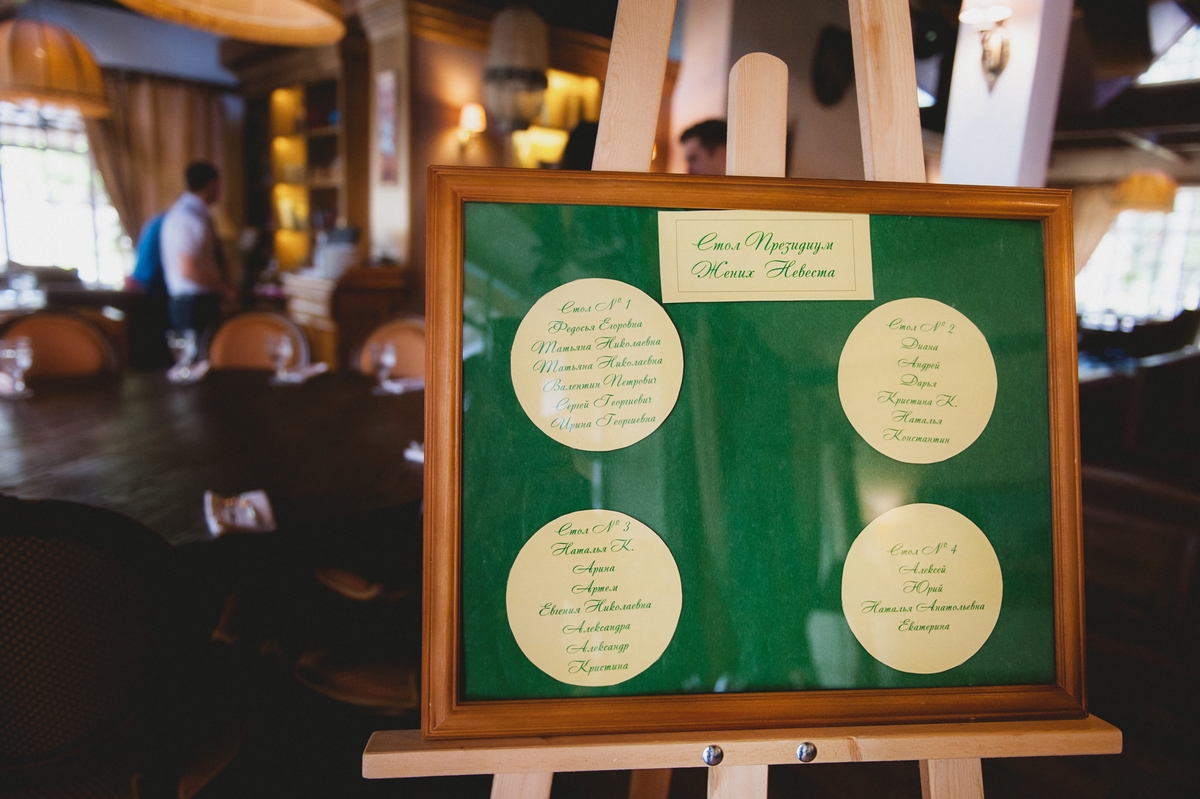 Стол Президиум
Жених Невеста
Стол № 1
Федосья Егоровна
Татьяна Николаевна
Татьяна Николаевна
Валентин Петрович
Сергей Георгиевич
Ирина Георгиевна
Стол № 2
Диана
Андрей
Дарья
Кристина К.
Наталья
Константин
Стол № 3
Наталья К.
Арина
Артем
Евгения Николаевна
Александра
Александр
Кристина
Стол № 4
Алексей
Юрий
Наталья Анатольевна
Екатерина